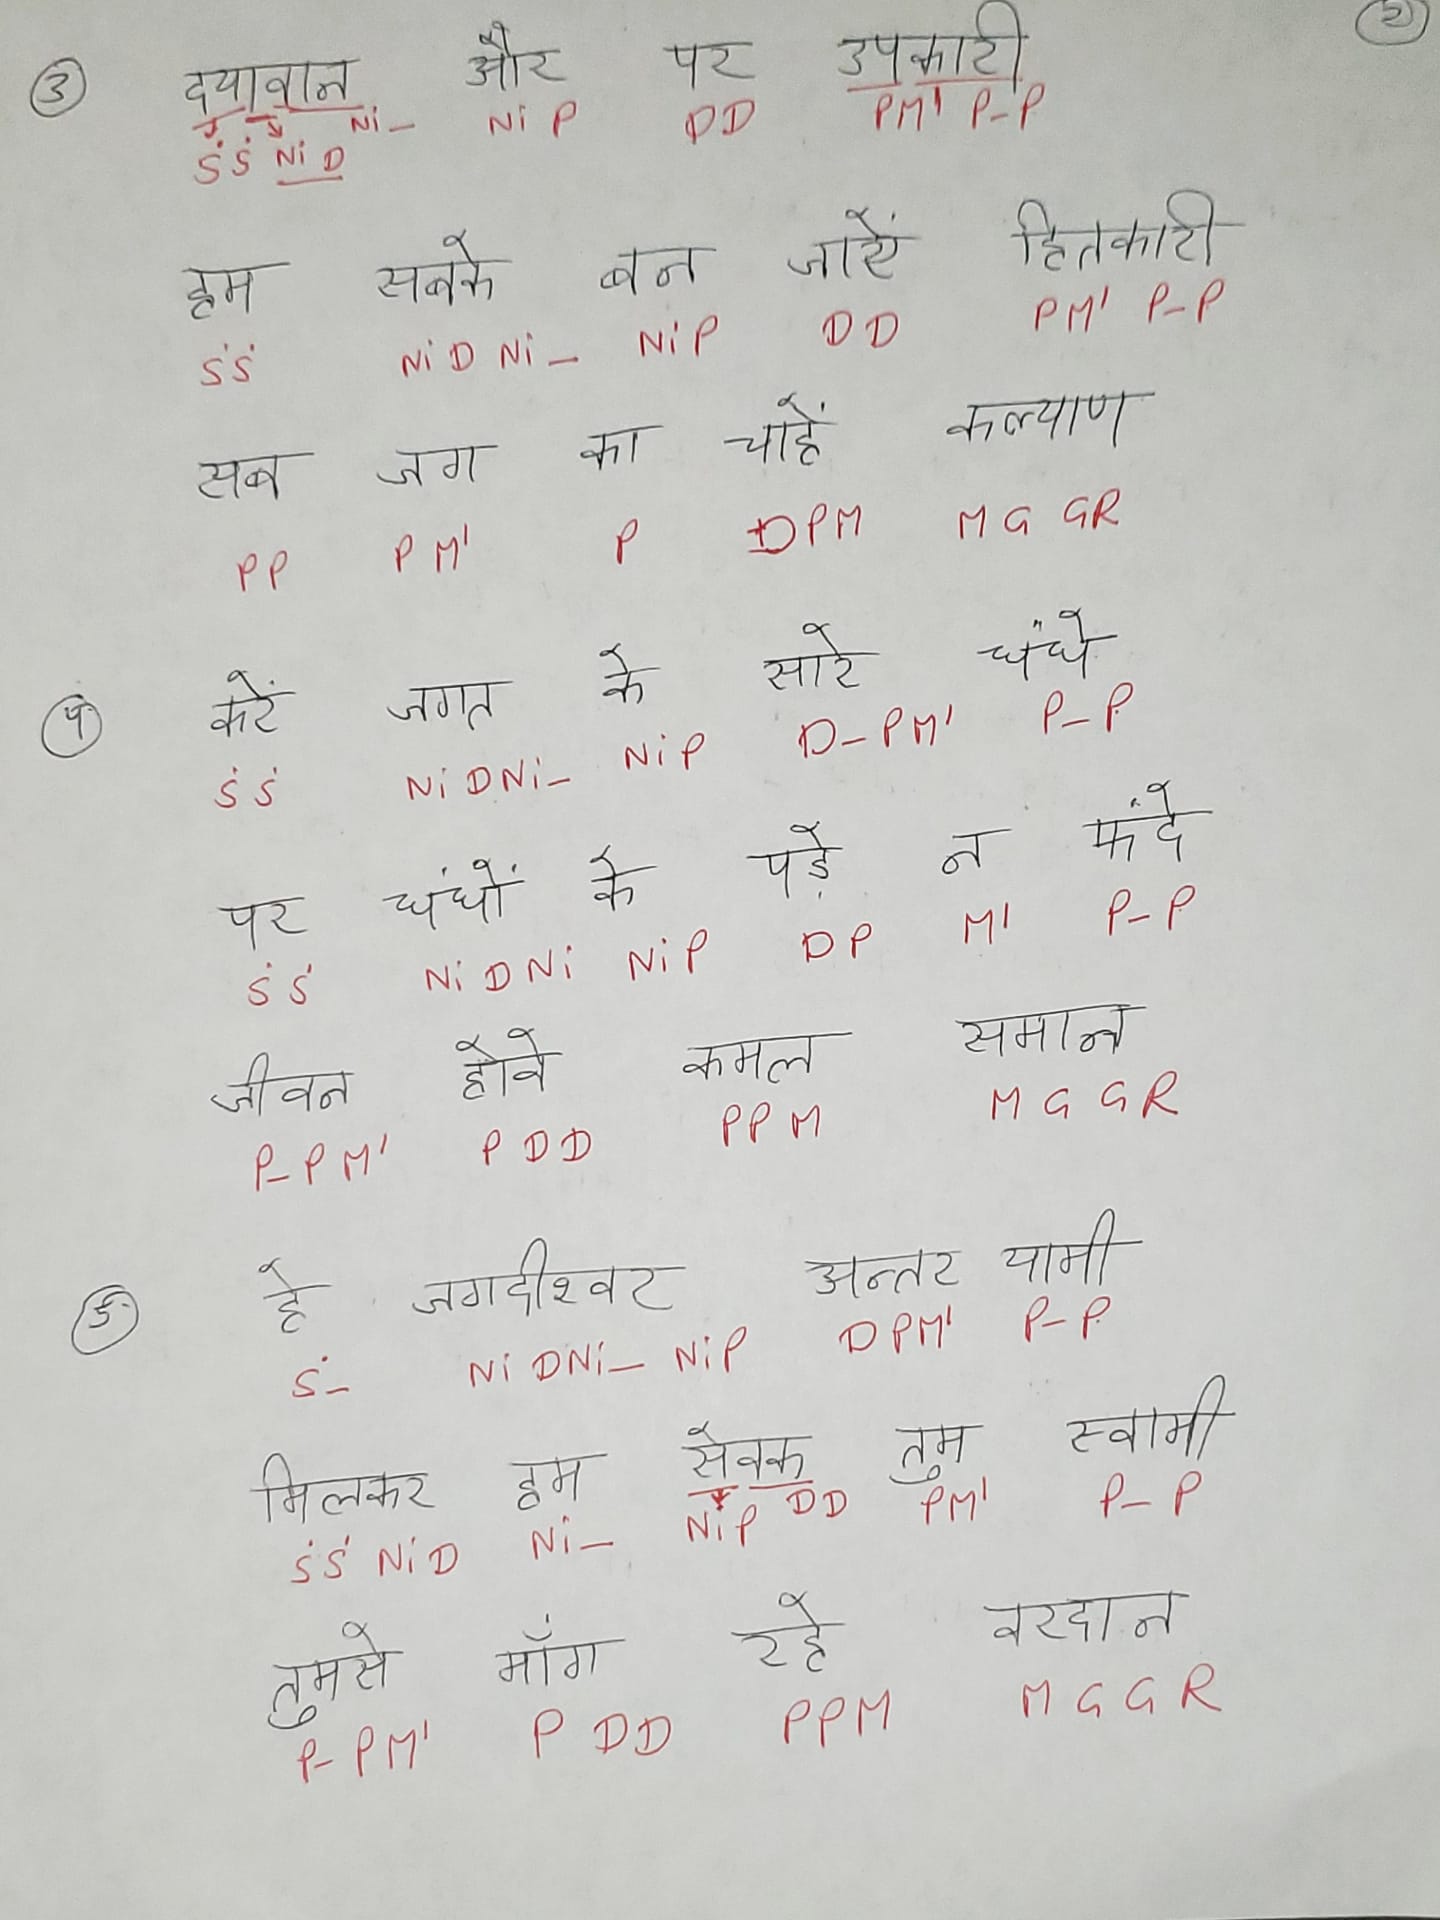 २
३ दयावान और पर उपकारी
Ni_ NiP DD PM' P-P
ṠṠ NiD
हम सबके बन जाएें हितकारी
ṠṠ NiDNi_ NiP DD PM' P-P
सब जग का चाहें कल्याण
PP PM' P DPM MG GR
४ करें जगत के सारे धंधे
ṠṠ NiDNi_ NiP D-PM' P-P
पर धंधों के पड़े न फंदे
ṠṠ NiDNi NiP DP M' P-P
जीवन होवे कमल समान
P-PM' PDD PPM MGGR
५ हे जगदीश्वर अन्तर यामी
Ṡ- NiDNi_ NiP DPM' P-P
मिलकर हम सेवक तुम स्वामी
ṠṠ NiD Ni_ NiP DD PM' P-P
तुमसे माँग रहे वरदान
P-PM' PDD PPM MGGR